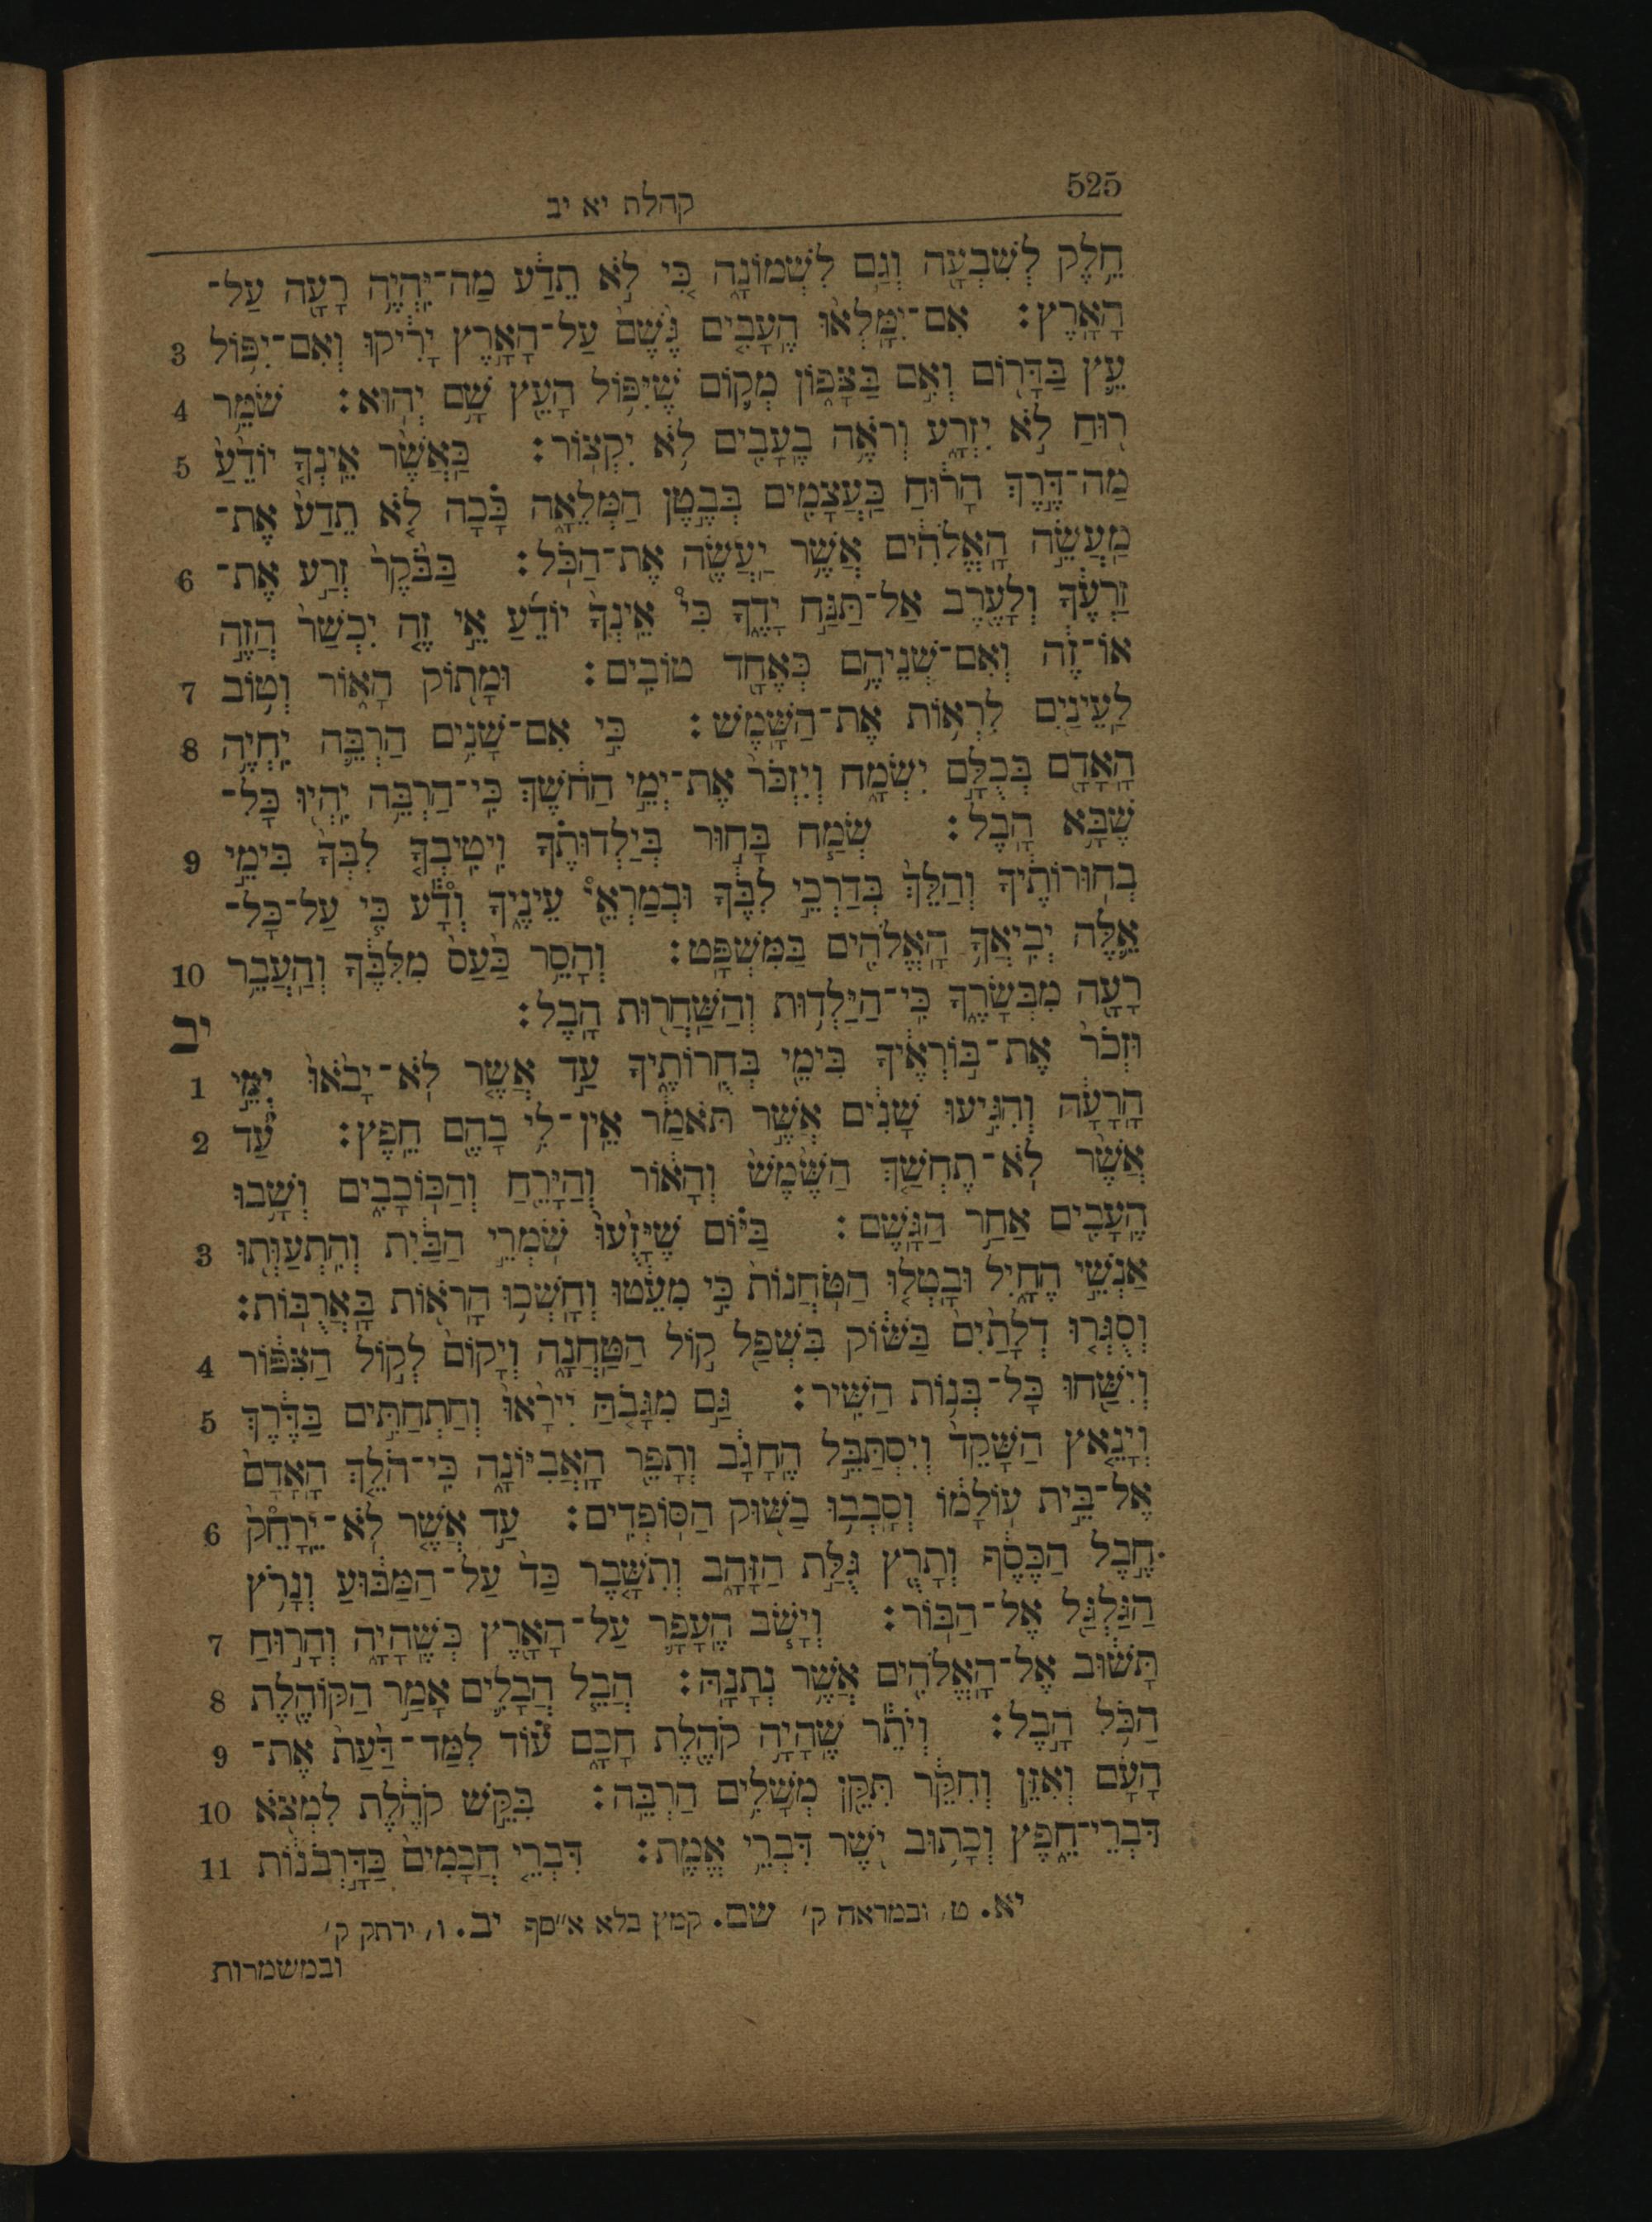 525
קהלת יא יב
חֵ֥לֶק לְשִׁבְעָ֖ה וְגַ֣ם לִשְׁמוֹנָ֑ה כִּ֚י לֹ֣א תֵדַ֔ע מַה־יִּֽהְיֶ֥ה רָעָ֖ה עַל־
הָאָֽרֶץ׃ אִם־יִמָּלְא֨וּ הֶעָבִ֥ים גֶּ֙שֶׁם֙ עַל־הָאָ֣רֶץ יָרִ֔יקוּ וְאִם־יִפּ֥וֹל 3
עֵ֛ץ בַּדָּר֖וֹם וְאִ֣ם בַּצָּפ֑וֹן מְק֛וֹם שֶׁיִּפּ֥וֹל הָעֵ֖ץ שָׁ֥ם יְהֽוּא׃ שֹׁמֵ֥ר 4
ר֖וּחַ לֹ֣א יִזְרָ֑ע וְרֹאֶ֥ה בֶעָבִ֖ים לֹ֥א יִקְצֽוֹר׃ כַּאֲשֶׁ֨ר אֵֽינְךָ֤ יוֹדֵ֙עַ֙ 5
מַה־דֶּ֣רֶךְ הָר֔וּחַ כַּעֲצָמִ֖ים בְּבֶ֣טֶן הַמְּלֵאָ֑ה כָּ֗כָה לֹ֤א תֵדַע֙ אֶת־
מַעֲשֵׂ֣ה הָֽאֱלֹהִ֔ים אֲשֶׁ֥ר יַעֲשֶׂ֖ה אֶת־הַכֹּֽל׃ בַּבֹּ֙קֶר֙ זְרַ֣ע אֶת־ 6
זַרְעֶ֔ךָ וְלָעֶ֖רֶב אַל־תַּנַּ֣ח יָדֶ֑ךָ כִּי֩ אֵֽינְךָ֨ יוֹדֵ֜עַ אֵ֣י זֶ֤ה יִכְשָׁר֙ הֲזֶ֣ה
אוֹ־זֶ֔ה וְאִם־שְׁנֵיהֶ֥ם כְּאֶחָ֖ד טוֹבִֽים׃ וּמָת֖וֹק הָא֑וֹר וְט֥וֹב 7
לַֽעֵינַ֖יִם לִרְא֥וֹת אֶת־הַשָּֽׁמֶשׁ׃ כִּ֣י אִם־שָׁנִ֥ים הַרְבֵּ֛ה יִחְיֶ֥ה 8
הָאָדָ֖ם בְּכֻלָּ֣ם יִשְׂמָ֑ח וְיִזְכֹּר֙ אֶת־יְמֵ֣י הַחֹ֔שֶׁךְ כִּֽי־הַרְבֵּ֥ה יִהְי֖וּ כָּל־
שֶׁבָּ֥א הָֽבֶל׃ שְׂמַ֧ח בָּח֣וּר בְּיַלְדוּתֶ֗ךָ וִֽיטִֽיבְךָ֤ לִבְּךָ֙ בִּימֵ֣י 9
בְחוּרוֹתֶ֔יךָ וְהַלֵּךְ֙ בְּדַרְכֵ֣י לִבְּךָ֔ וּבְמַרְאֵ֖י עֵינֶ֑יךָ וְדָ֕ע כִּ֧י עַל־כָּל־
אֵ֛לֶּה יְבִֽיאֲךָ֥ הָאֱלֹהִ֖ים בַּמִּשְׁפָּֽט׃ וְהָסֵ֥ר כַּ֙עַס֙ מִלִּבֶּ֔ךָ וְהַעֲבֵ֥ר 10
רָעָ֖ה מִבְּשָׂרֶ֑ךָ כִּֽי־הַיַּלְד֥וּת וְהַֽשַּׁחֲר֖וּת הָֽבֶל׃
יב
וּזְכֹר֙ אֶת־בּ֣וֹרְאֶ֔יךָ בִּימֵ֖י בְּחוּרֹתֶ֑יךָ עַ֣ד אֲשֶׁ֤ר לֹֽא־יָבֹ֙אוּ֙ יְמֵ֣י 1
הָֽרָעָ֔ה וְהִגִּ֣יעוּ שָׁנִ֔ים אֲשֶׁ֣ר תֹּאמַ֔ר אֵֽין־לִ֥י בָהֶ֖ם חֵֽפֶץ׃ עַ֠ד 2
אֲשֶׁ֨ר לֹֽא־תֶחְשַׁ֤ךְ הַשֶּׁ֙מֶשׁ֙ וְהָא֔וֹר וְהַיָּרֵ֖חַ וְהַכּוֹכָבִ֑ים וְשָׁ֥בוּ
הֶעָבִ֖ים אַחַ֥ר הַגָּֽשֶׁם׃ בַּיּ֗וֹם שֶׁיָּזֻ֙עוּ֙ שֹׁמְרֵ֣י הַבַּ֔יִת וְהִֽתְעַוְּת֖וּ 3
אַנְשֵׁ֣י הֶחָ֑יִל וּבָטְל֤וּ הַטֹּֽחֲנוֹת֙ כִּ֣י מִעֵ֔טוּ וְחָשְׁכ֥וּ הָרֹא֖וֹת בָּאֲרֻבּֽוֹת׃
וְסֻגְּר֤וּ דְלָתַ֙יִם֙ בַּשּׁ֔וּק בִּשְׁפַ֖ל ק֣וֹל הַֽטַּחֲנָ֑ה וְיָקוּם֙ לְק֣וֹל הַצִּפּ֔וֹר 4
וְיִשַּׁ֖חוּ כָּל־בְּנ֥וֹת הַשִּֽׁיר׃ גַּ֣ם מִגָּבֹ֤הַּ יִירָ֙אוּ֙ וְחַתְחַתִּ֣ים בַּדֶּ֔רֶךְ 5
וְיָנֵ֤אץ הַשָּׁקֵד֙ וְיִסְתַּבֵּ֣ל הֶֽחָגָ֔ב וְתָפֵ֖ר הָֽאֲבִיּוֹנָ֑ה כִּֽי־הֹלֵ֤ךְ הָאָדָם֙
אֶל־בֵּ֣ית עוֹלָמ֔וֹ וְסָבְב֥וּ בַשּׁ֖וּק הַסֹּוֹפְדִֽים׃ עַ֣ד אֲשֶׁ֤ר לֹֽא־יֵרָחֵק֙ 6
חֶ֣בֶל הַכֶּ֔סֶף וְתָרֻ֖ץ גֻּלַּ֣ת הַזָּהָ֑ב וְתִשָּׁ֤בֶר כַּד֙ עַל־הַמַּבּ֔וּעַ וְנָרֹ֥ץ
הַגַּלְגַּ֖ל אֶל־הַבּֽוֹר׃ וְיָשֹׁ֧ב הֶעָפָ֛ר עַל־הָאָ֖רֶץ כְּשֶׁהָיָ֑ה וְהָר֣וּחַ 7
תָּשׁ֔וּב אֶל־הָאֱלֹהִ֖ים אֲשֶׁ֥ר נְתָנָֽהּ׃ הֲבֵ֧ל הֲבָלִ֛ים אָמַ֥ר הַקּוֹהֶ֖לֶת 8
הַכֹּ֥ל הָֽבֶל׃ וְיֹתֵ֕ר שֶׁהָיָ֥ה קֹהֶ֖לֶת חָכָ֑ם ע֗וֹד לִמַּד־דַּ֙עַת֙ אֶת־ 9
הָעָ֔ם וְאִזֵּ֣ן וְחִקֵּ֔ר תִּקֵּ֖ן מְשָׁלִ֥ים הַרְבֵּֽה׃ בִּקֵּ֣שׁ קֹהֶ֔לֶת לִמְצֹ֖א 10
דִּבְרֵי־חֵ֑פֶץ וְכָת֥וּב יֹ֖שֶׁר דִּבְרֵ֥י אֱמֶֽת׃ דִּבְרֵ֤י חֲכָמִים֙ כַּדָּ֣רְבֹנ֔וֹת 11
יא. ט, ובמראה ק׳ שם. קמץ בלא א״סף יב. ו, ירתק ק׳
ובמשמרות